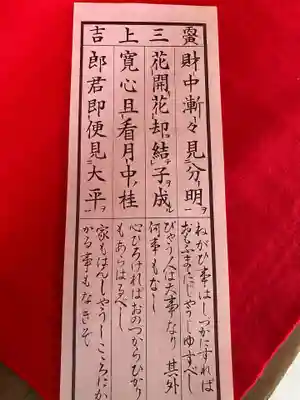 靈三上吉
財中漸々見分明
ねがひ事はしづかにすれば
おもふまゝにじやうじゆすべし
花開花却結子成
びやう人は大事なり 其外
何事もなし
寛心且看月中桂
心ひろければおのづからひかり
もあらはるべし
郎君即便見大平
家もはんじやうしこゝろにか
かる事もなきぞ